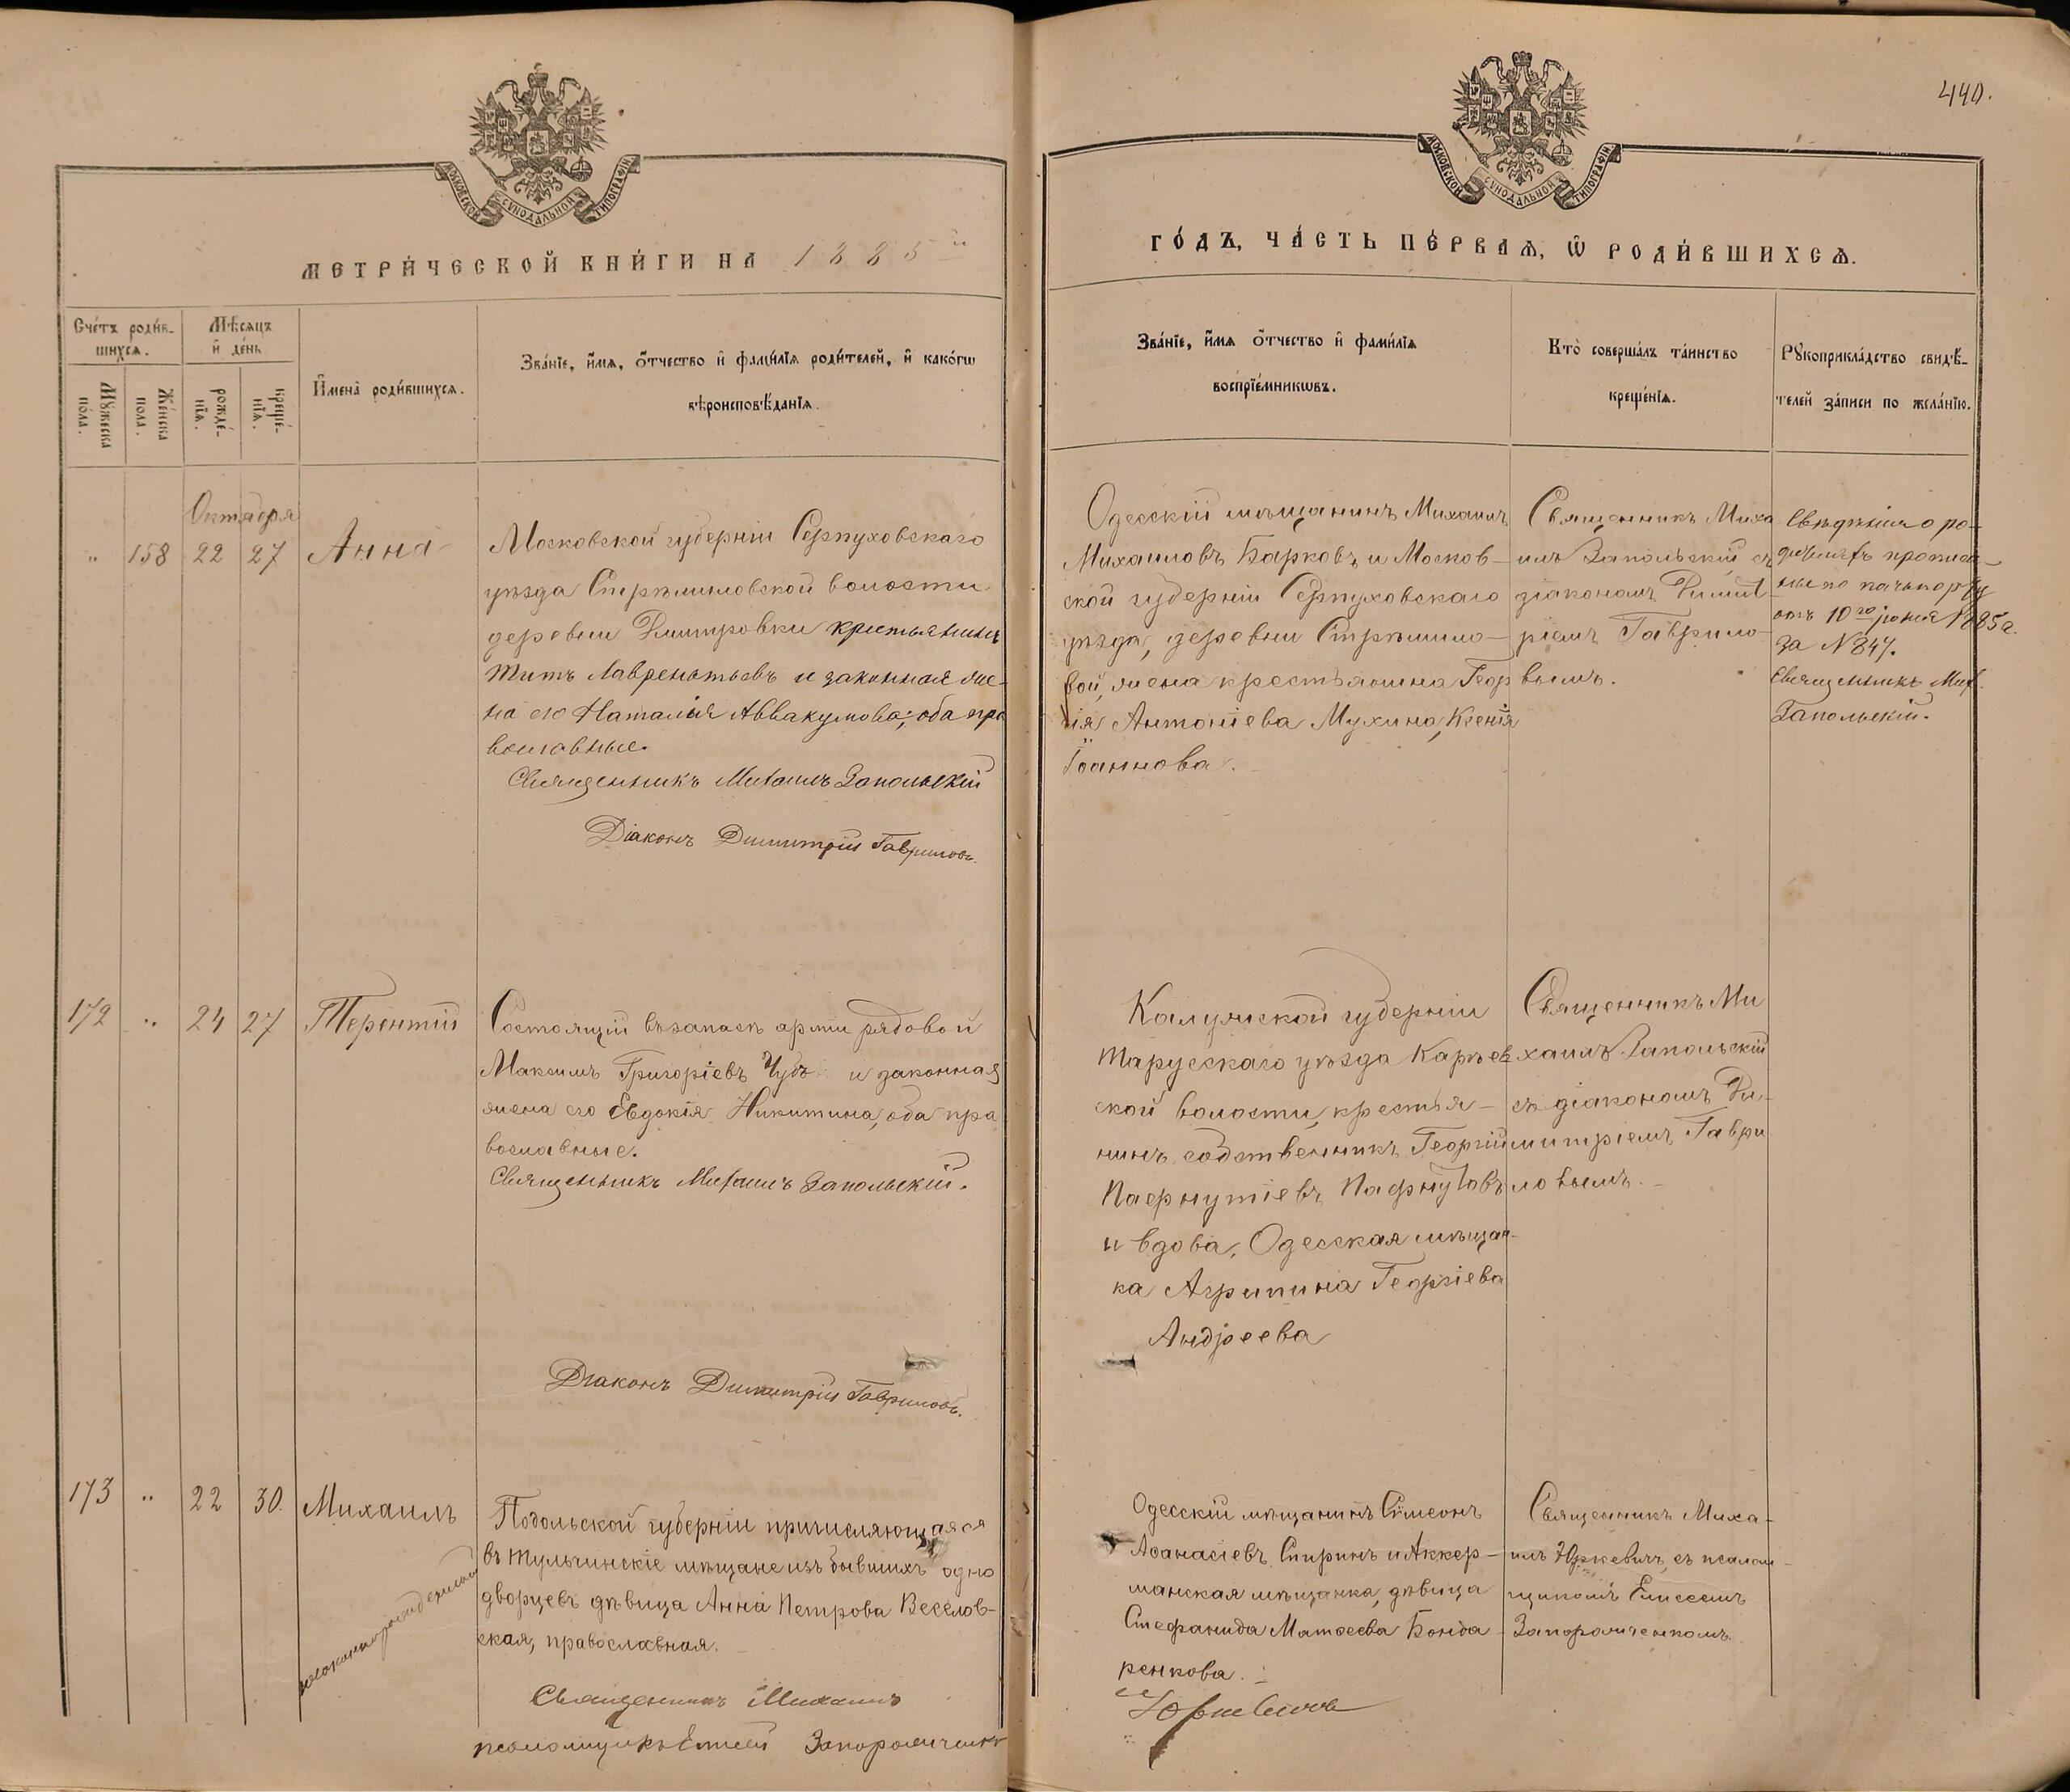 440.
МОСКОВСКОЙ СУНОДАЛЬНОЙ ТИПОГРАФІИ
МОСКОВСКОЙ СУНОДАЛЬНОЙ ТИПОГРАФІИ
МЕТРИ́ЧЕСКОЙ КНИ́ГИ НА 1885 й
ГО́ДЪ, ЧА́СТЬ ПЕ́РВАѦ, Ѡ РОДИ́ВШИХСѦ.
Сче́тъ роди́в-
шихсѧ.
Мꙋ́жеска
по́ла.
Же́нска
пола.
Мѣ́сѧцъ
и҆ де́нь
рожде́-
нїѧ.
креще́-
нїѧ.
И҆мена̀ роди́вшихсѧ.
Зва́нїе, и҆́мѧ, ѻ҆́тчество и҆ фами́лїѧ роди́телей, и҆ како́гѡ
вѣроисповѣ́данїѧ.
Зва́нїе, и҆́мѧ ѻ҆́тчество и҆ фами́лїѧ
воспрїе́мникѡвъ.
Кто̀ соверша́лъ та́инство
креще́нїѧ.
Рꙋкоприкла́дство свидѣ́-
телей за́писи по жела́нїю.
Октября
" 158 22 27 Анна
Московской губерніи Серпуховскаго
уѣзда Стремиловской волости
деревни Дмитровки крестьянинъ
Титъ Лаврентьевъ и законная же-
на его Наталія Аввакумова; оба пра
вославные.
Священникъ Михаилъ Запольскій
Діаконъ Димитрій Гавриловъ.
Одесскій мѣщанинъ Михаилъ
Михаиловъ Барковъ и Москов-
ской губерніи Серпуховскаго
уѣзда, деревни Стремило-
вой, жена крестьянина Геор
гія Антоніева Мухина, Ксенія
Іоаннова.
Священникъ Миха
илъ Запольскій съ
діакономъ Димит
ріемъ Гаврило-
вымъ.
Свѣдѣнія о ро-
дителяхъ прописа-
ны по паспорту
отъ 10го іюня 1885 г.
за N 847.
Священникъ Мих.
Запольскій.
172 " 24 27 Терентій
Состоящій въ запасѣ арміи рядовой
Максимъ Григоріевъ Чубъ и законная
жена его Евдокія Никитина, оба пра
вославные.
Священникъ Михаилъ Запольскій.
Діаконъ Димитрій Гавриловъ.
Калужской губерніи
Тарусскаго уѣзда Карѣев
ской волости, крестья-
нинъ собственникъ Георгій
Пафнутіевъ Пафнутовъ
и вдова, Одесская мѣщан-
ка Агрипина Георгіева
Андреева
Священникъ Ми
хаилъ Запольскій
съ діакономъ Ди-
митріемъ Гаври
ловымъ.
173 " 22 30. Михаилъ
незаконнорожденный
Подольской губерніи причисляющаяся
въ Тульчинскіе мѣщане изъ бывшихъ одно
дворцевъ дѣвица Анна Петрова Веселов-
ская, православная.
Священникъ Михаилъ
псаломщикъ Елисей Запорожченко
Одесскій мѣщанинъ Сѵмеонъ
Аѳанасіевъ Спиринъ и Аккер-
манская мѣщанка, дѣвица
Стефанида Матѳеева Бонда-
ренкова.
Юркевичъ
Священникъ Миха-
илъ Юркевичъ, съ псалом-
щикомъ Елисеемъ
Запорожченкомъ.